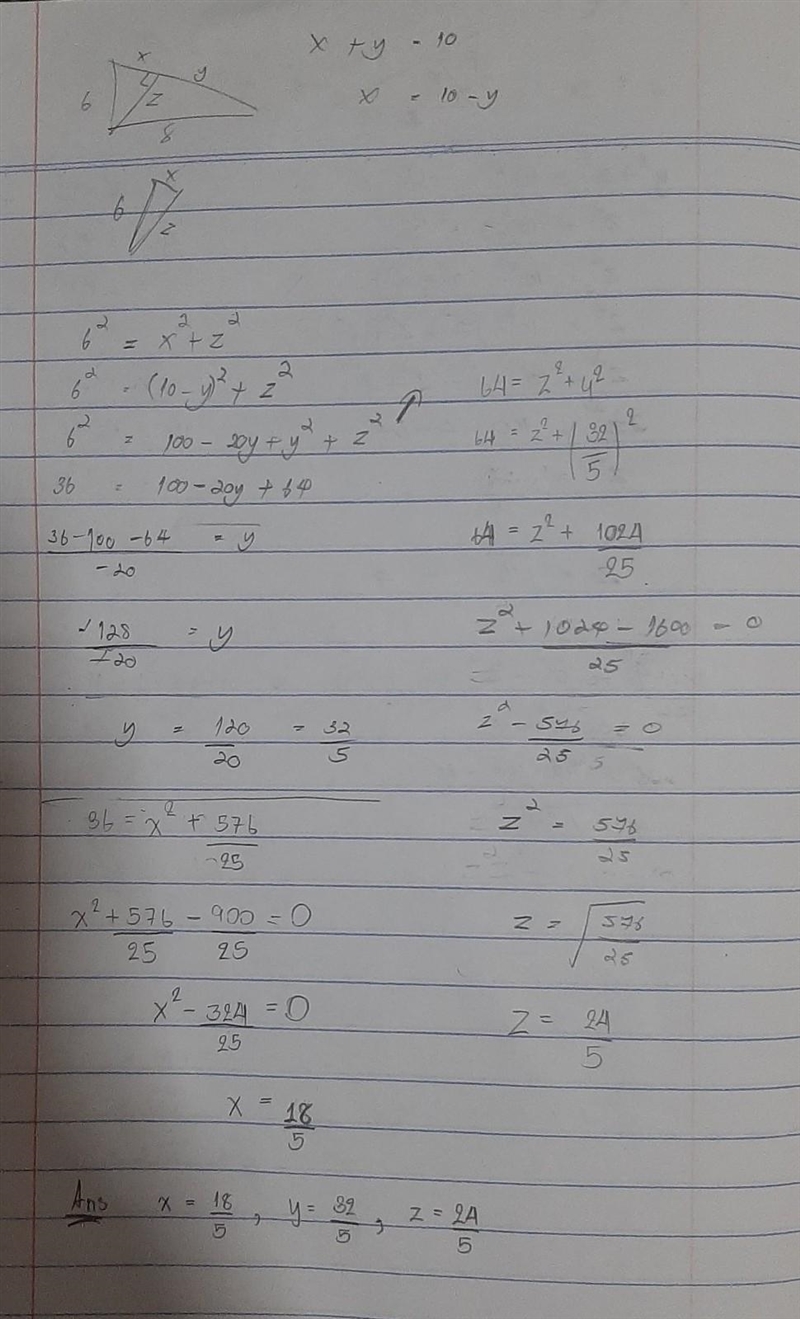 x + y = 10
x = 10 - y
x
y
6
z
8
x
6
z
6² = x² + z²
6² = (10-y)² + z²
6² = 100 - 20y + y² + z²
36 = 100 - 20y + 64
36-100-64 / -20 = y
-128 / -20 = y
y = 120/20 = 32/5
64 = z² + y²
64 = z² + (32/5)²
64 = z² + 1024/25
z² + 1024 - 1600 / 25 = 0
z² - 576/25 = 0
z² = 576/25
z = √(576/25)
z = 24/5
36 = x² + 576/25
x² + 576/25 - 900/25 = 0
x² - 324/25 = 0
x = 18/5
Ans x = 18/5, y = 32/5, z = 24/5